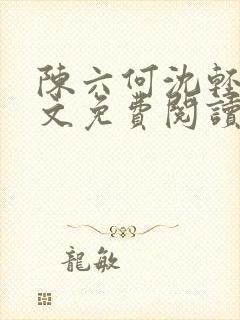 陳六何沈輕
文免費閱讀
龍敏